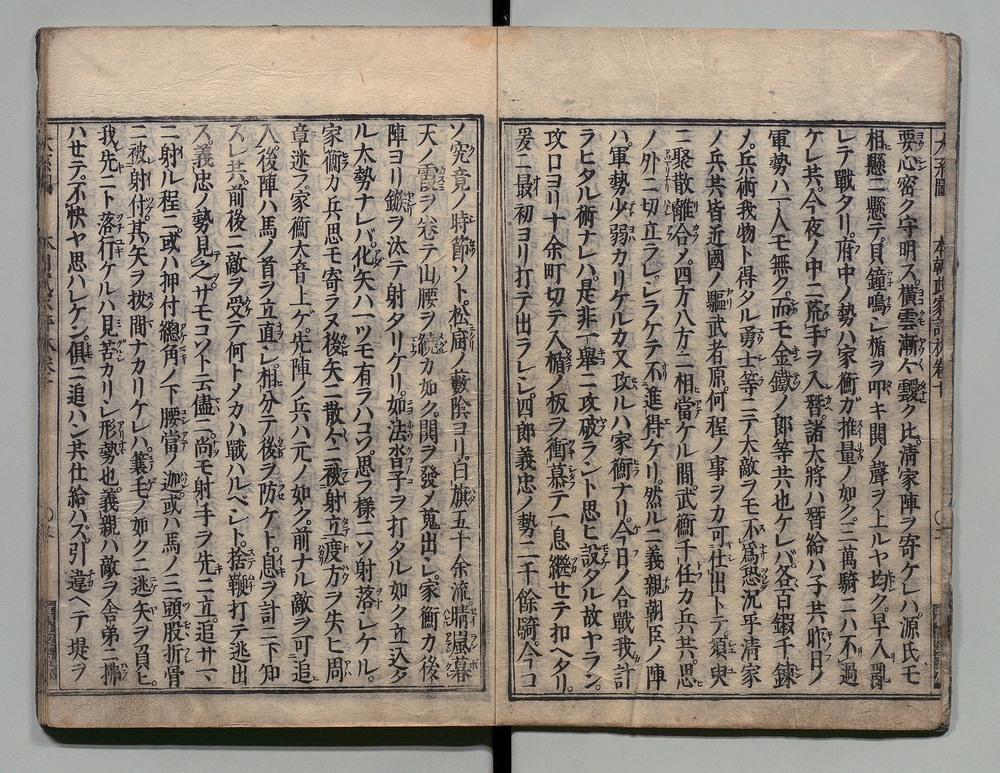 要心密ク守明ス。横雲漸〻靉ク比。清家陣ヲ寄ケレハ。源氏モ
相懸ニ懸テ。貝鐘鳴シ楯ヲ叩キ閧ノ聲ヲ上ルヤ均ク。早入亂
レテ戰タリ。府中ノ勢ハ家衡ガ推量ノ如ク。三萬騎ニハ不過
ケレ共。今夜ノ中ニ荒手ヲ入暦。諸大將ハ暦給ハ子共。昨日ノ
軍勢ハ一人モ無ク。而モ金鐵ノ郎等共也ケレバ。各百鍜千錬
ノ。兵術我物ト得タル勇士等ニテ。大敵ヲモ不爲恐。况平清家
ノ兵共。皆近國ノ驅武者原。何程ノ事ヲカ可仕出トテ。須臾
ニ聚散離合ノ。四方八方ニ相當ケル間。武衡千任カ兵共。思
ノ外ニ切立ラレ。シラケテ不進得ケリ。然ルニ義親朝臣ノ陣
ハ。軍勢少弱カリケルカ。又攻ルハ家衡ナリ。今日ノ合戰我計
ラヒタル術ナレハ。是非一擧ニ攻破ラント思ヒ設タル故ヤラン。
攻口ヨリ十余町切テ入。楯ノ板ヲ衝慕テ一息繼セテ扣ヘタリ。
爰ニ最初ヨリ打テ出ラレシ。四郎義忠ノ勢二千餘騎。今コ
ソ究竟ノ時節ソト。松府ノ藪陰ヨリ。白旗五十余流。晴嵐暮
天ノ霞ヲ卷テ山腰ヲ カ如ク。閧ヲ發メ蒐出レ。家衡カ後
陣ヨリ鏃ヲ汰テ射タリケリ。如法沓子ヲ打タル如ク立込タ
ル太勢ナレバ。化矢ハ一ツモ有ラハコソ。思ラ樣ニソ射落レケル。
家衡カ兵思モ寄ラヌ後矢ニ散〻ニ被射立。度方ヲ失ヒ周
章迷フ。家衡大音上ゲ。先陣ノ兵ハ元ノ如ク。前ナル敵ヲ可追
入。後陣ハ馬ノ首ヲ立直シ。相分テ後ヲ防ケト。息ヲ計ニ下知
スレ共。前後ニ敵ヲ受テ何トメカハ戰ハルベシト。捨鞭打テ逃出
ス。義忠ノ勢見之。サモコソト云儘ニ。尚モ射手ヲ先ニ立。追サ一、
ニ射ル程ニ。或ハ押付總角ノ下腰當ノ迦。或ハ馬ノ三頭股折骨
ニ被射付。其矢ヲ拔間ナカリケレハ。簑毛ノ如クニ逃矢ヲ負ヒ。
我先ニト落行ケルハ。見苦カリシ形勢也。義親ハ敵ヲ舎弟ニ拂
ハセテ。不快ヤ思ハレケン。俱ニ追ハン共仕給ハズ。引違ヘテ堤ヲ